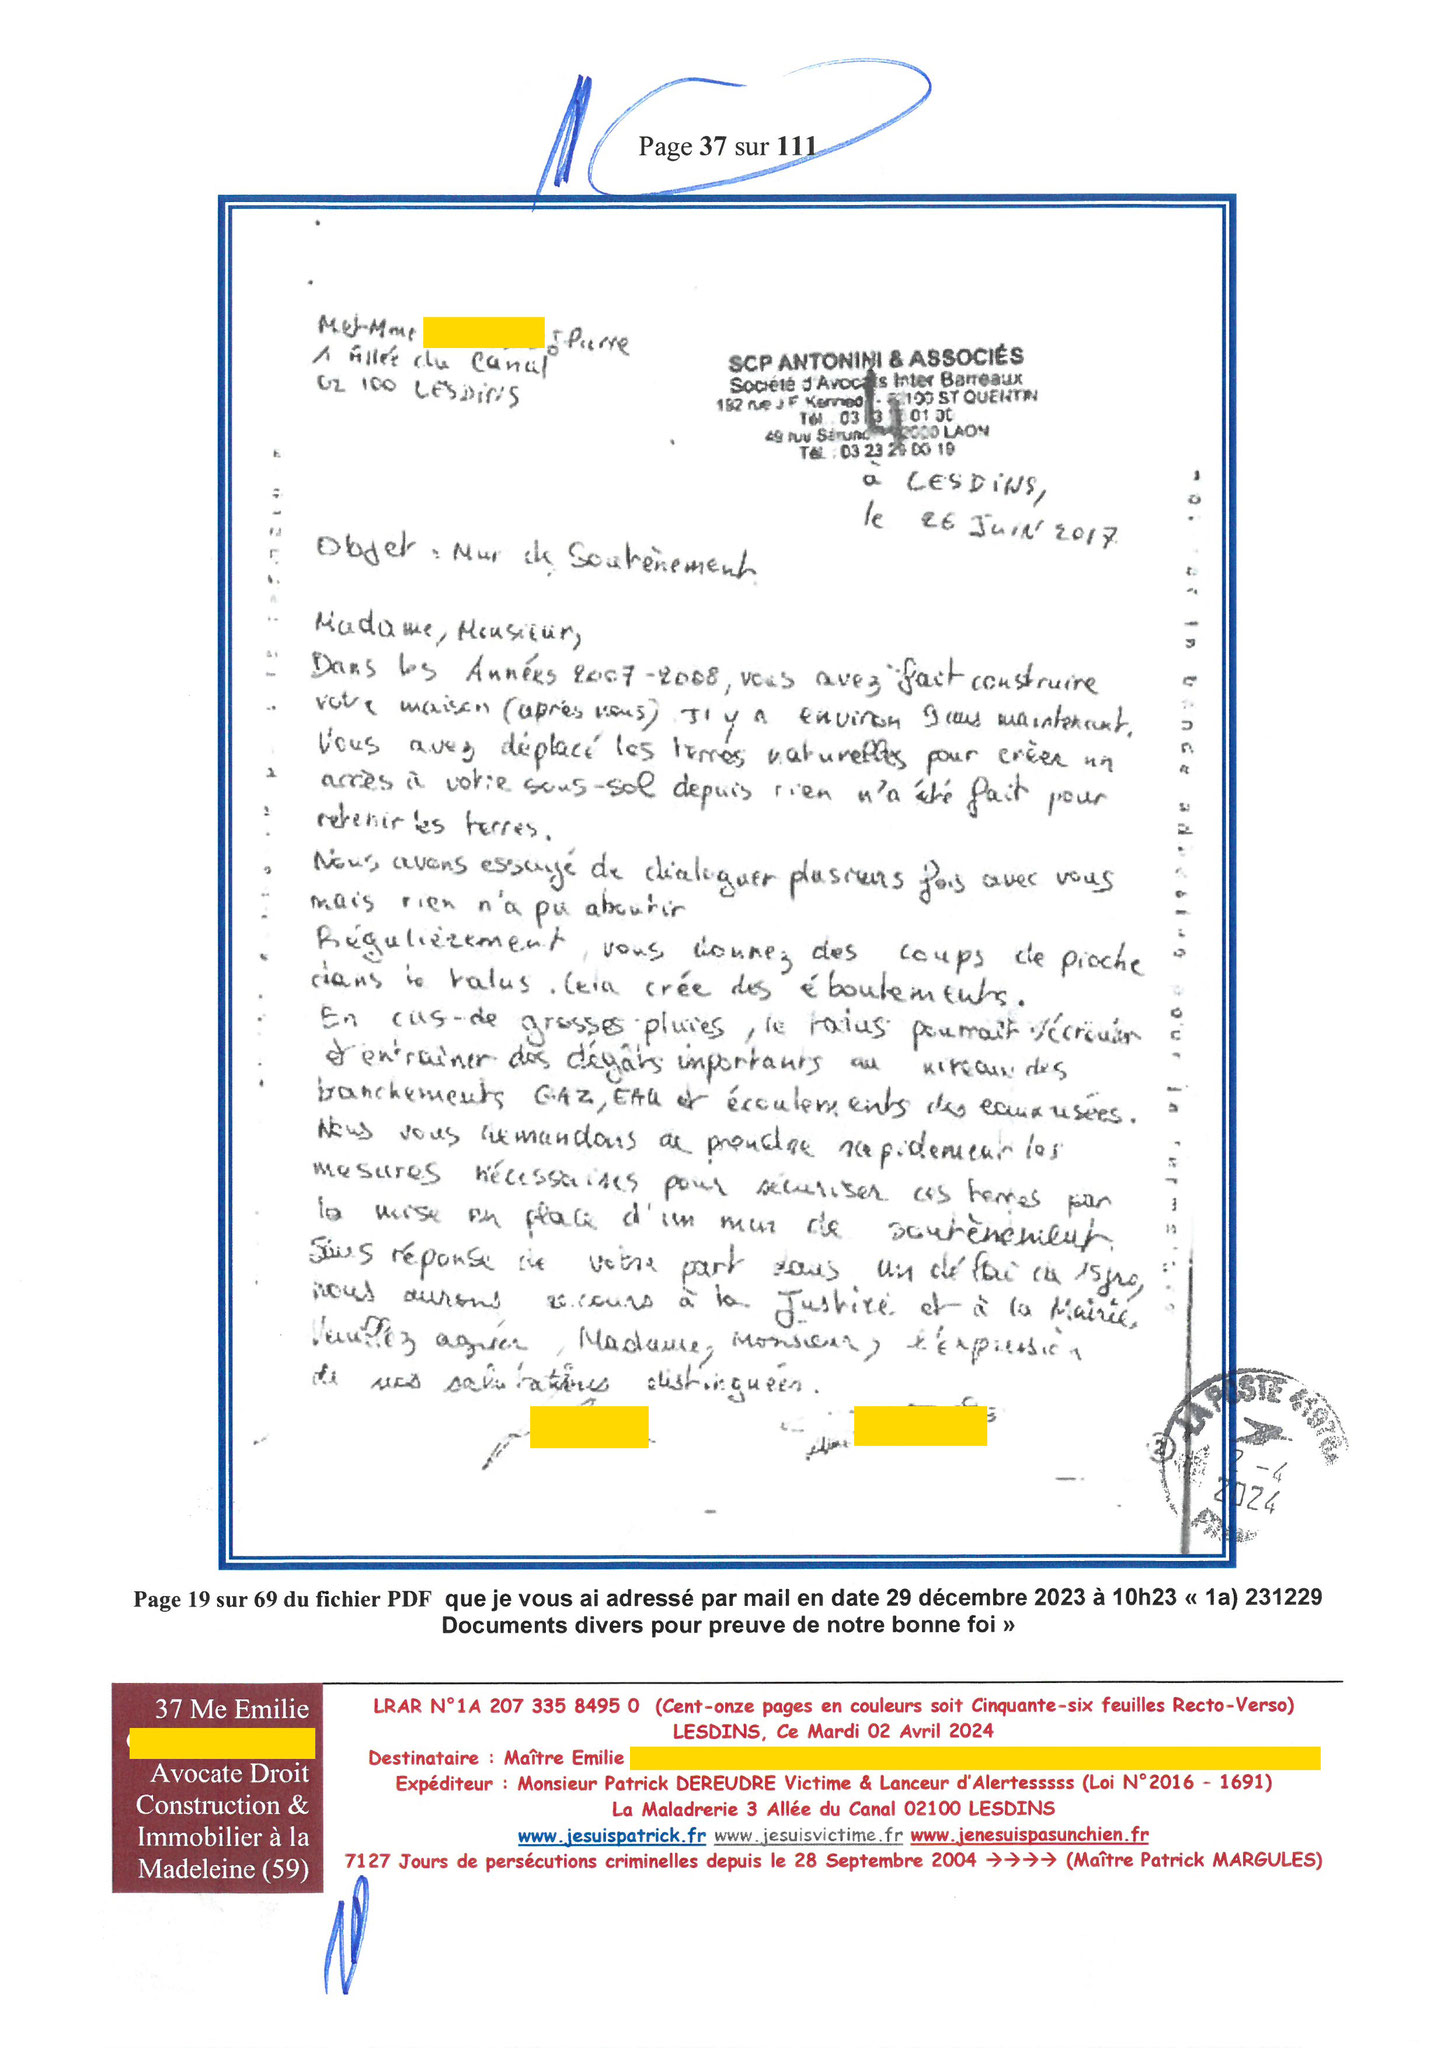 Page 37 sur 111
Met Mme Pierre
1 Allée du Canal
02 100 LESDINS
SCP ANTONINI & ASSOCIÉS
Société d'Avocats Inter Barreaux
192 rue J F Kenned 100 ST QUENTIN
Tél 03 01 00
49 rue Sérur LAON
Tél. 03 23 29 00 19
4
à LESDINS,
le 26 Juin 2017
Objet : Mur de Soutènement
Madame, Monsieur,
Dans les Années 2007-2008, vous avez fait construire
votre maison (après nous) il y a environ 9 ans maintenant.
Vous avez déplacé les terres naturelles pour créer un
accès à votre sous-sol depuis rien n'a été fait pour
retenir les terres.
Nous avons essayé de dialoguer plusieurs fois avec vous
mais rien n'a pu aboutir
Régulièrement, vous donnez des coups de pioche
dans le talus. Cela crée des éboulements.
En cas de grosses pluies, le talus pourrait s'écrouler
et entrainer des dégâts importants au niveau des
branchements GAZ, EAU et écoulements des eaux usées.
Nous vous demandons de prendre rapidement les
mesures nécessaires pour sécuriser ces terres par
la mise en place d'un mur de soutènement.
Sans réponse de votre part dans un délai de 15 jrs,
nous aurons recours à la Justice et à la Mairie.
Veuillez agréer, Madame, Monsieur, l'expression
de nos salutations distinguées.
LA POSTE
2 - 4
2024
Page 19 sur 69 du fichier PDF que je vous ai adressé par mail en date 29 décembre 2023 à 10h23 « 1a) 231229
Documents divers pour preuve de notre bonne foi »
37 Me Emilie
Avocate Droit
Construction &
Immobilier à la
Madeleine (59)
LRAR N°1A 207 335 8495 0 (Cent-onze pages en couleurs soit Cinquante-six feuilles Recto-Verso)
LESDINS, Ce Mardi 02 Avril 2024
Destinataire : Maître Emilie
Expéditeur : Monsieur Patrick DEREUDRE Victime & Lanceur d'Alertesssss (Loi N°2016 - 1691)
La Maladrerie 3 Allée du Canal 02100 LESDINS
www.jesuispatrick.fr www.jesuisvictime.fr www.jenesuispasunchien.fr
7127 Jours de persécutions criminelles depuis le 28 Septembre 2004 →→→→ (Maître Patrick MARGULES)